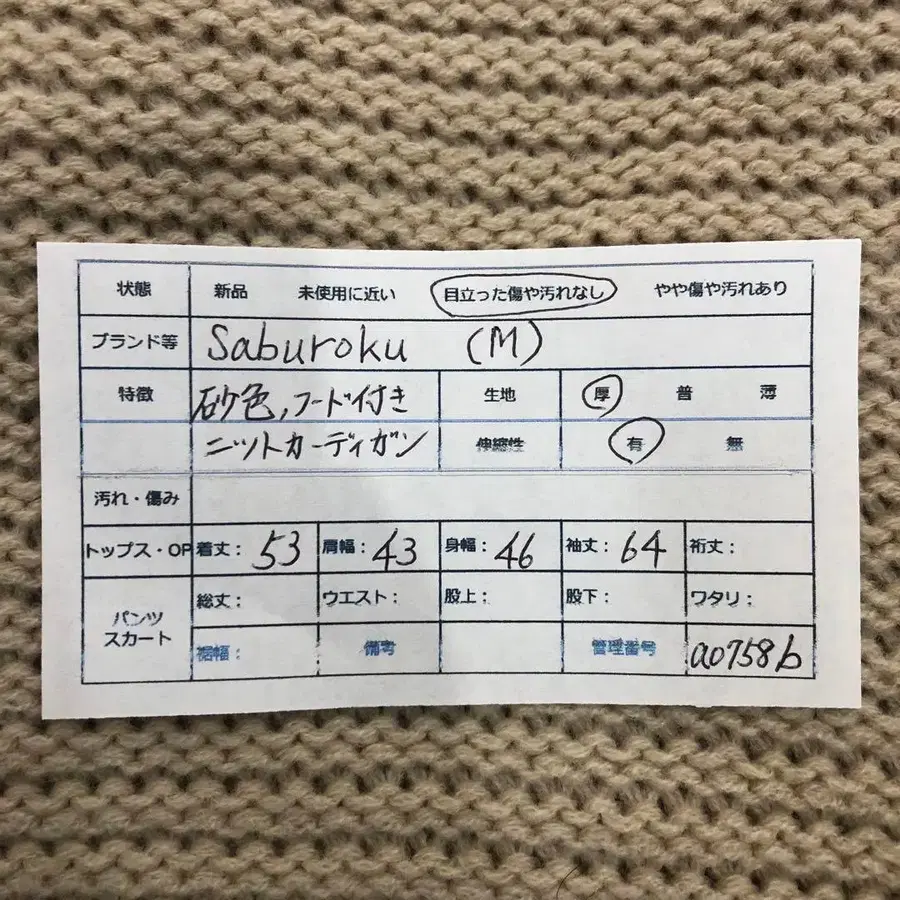 状態 新品 未使用に近い 目立った傷や汚れなし やや傷や汚れあり
ブランド等 Saburoku (M)
特徴 砂色,フード付き 生地 厚 普 薄
ニットカーディガン 伸縮性 有 無
汚れ・傷み
トップス・OP 着丈: 53 肩幅: 43 身幅: 46 袖丈: 64 裄丈:
パンツ スカート 総丈: ウエスト: 股上: 股下: ワタリ:
裾幅: 備考 管理番号 a0758b